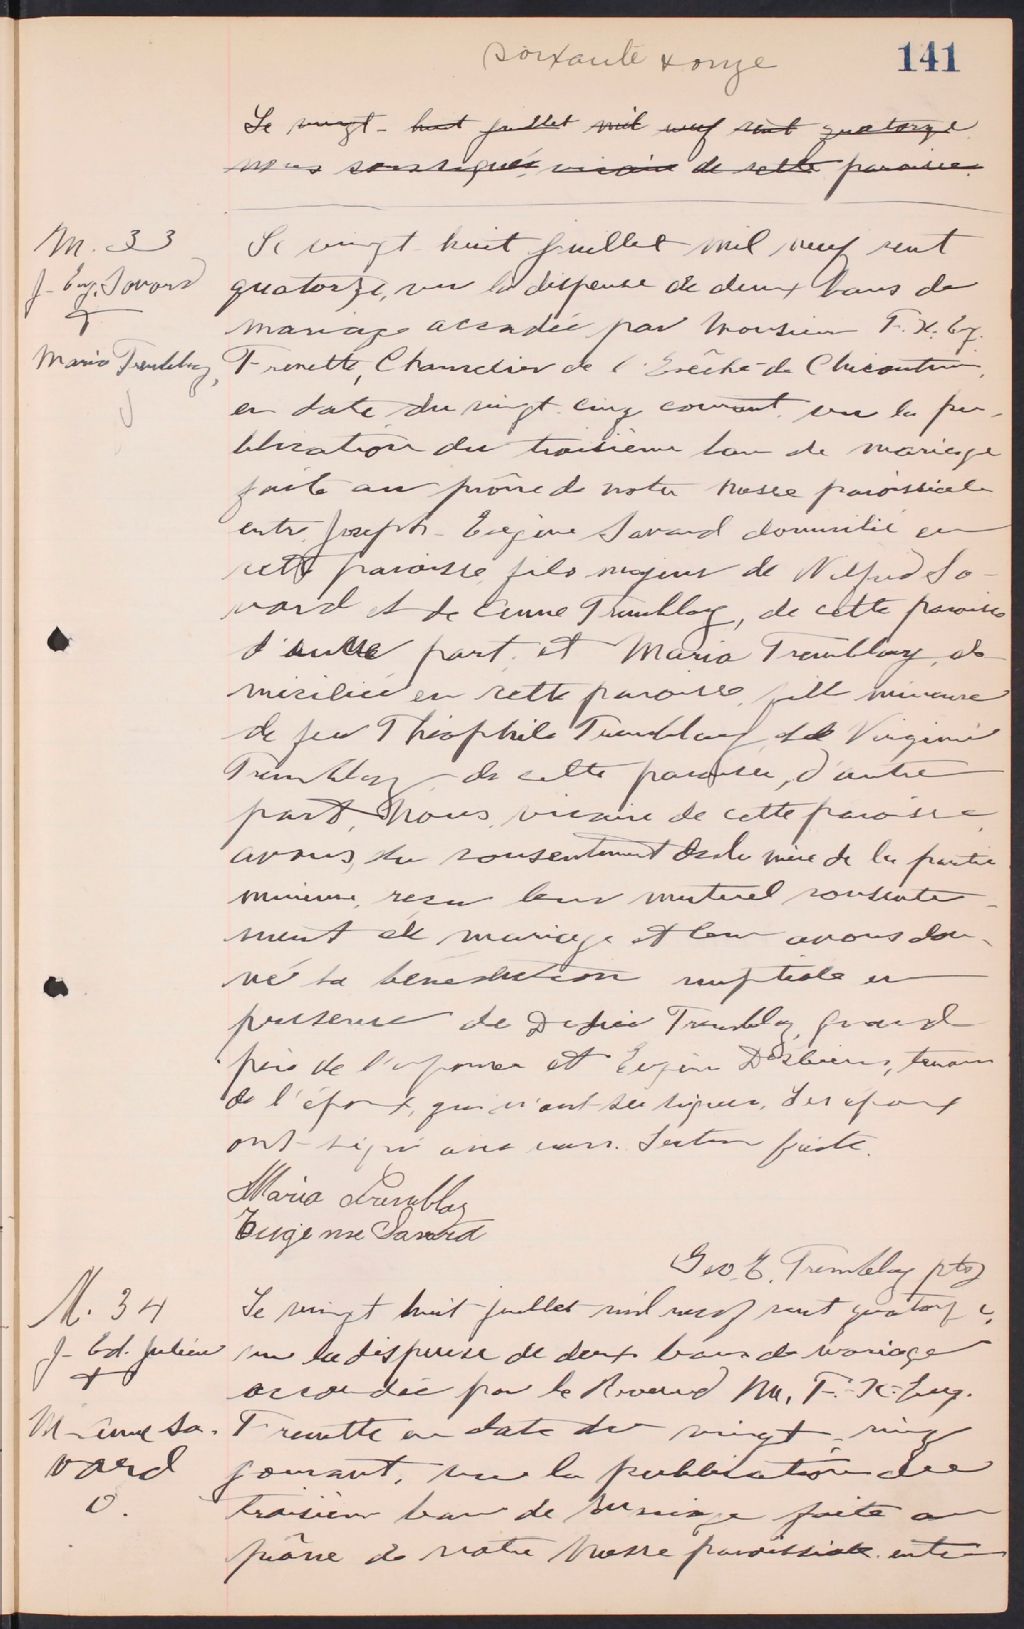 soixante & onze
141
Le vingt-huit juillet mil neuf cent quatorze
nous soussigné vicaire de cette paroisse
M. 33
J-Eug. Savard
+
Maria Tremblay
Le vingt-huit juillet mil neuf cent
quatorze, vu la dispense de deux bans de
mariage accordée par Monsieur F. X. Eug.
Frenette, Chancelier de l'Evêché de Chicoutimi,
en date du vingt-cinq courant, vu la pu-
blication du troisième ban de mariage
faite au prône de notre Messe paroissiale
entre Joseph-Eugène Savard domicilié en
cette paroisse, fils majeur de Wilfrid Sa-
vard et de Anne Tremblay, de cette paroisse
d'une part, et Maria Tremblay, do-
miciliée en cette paroisse, fille mineure
de feu Théophile Tremblay et de Virginie
Tremblay de cette paroisse, d'autre
part, Nous, vicaire de cette paroisse
avons, du consentement de la mère de la partie
mineure, reçu leur mutuel consente-
ment de mariage et leur avons don-
né la bénédiction nuptiale en
présence de Tremblay, grand-
père de l'épouse et Eugène Desbiens, témoin
de l'époux, qui n'ont su signer. Les époux
ont signé avec nous. Lecture faite.
Maria Tremblay
Eugene Savard
Geo. E. Tremblay ptre
M. 34
J-Ed. Julien
+
M-Anne Sa-
vard
Le vingt huit juillet mil neuf cent quatorze,
vu la dispense de deux bans de mariage
accordée par le Révérend M. F.-X.-Eug.
Frenette en date du vingt-cinq
courant, vu la publication du
troisième ban de mariage faite au
prône de notre Messe paroissiale entre